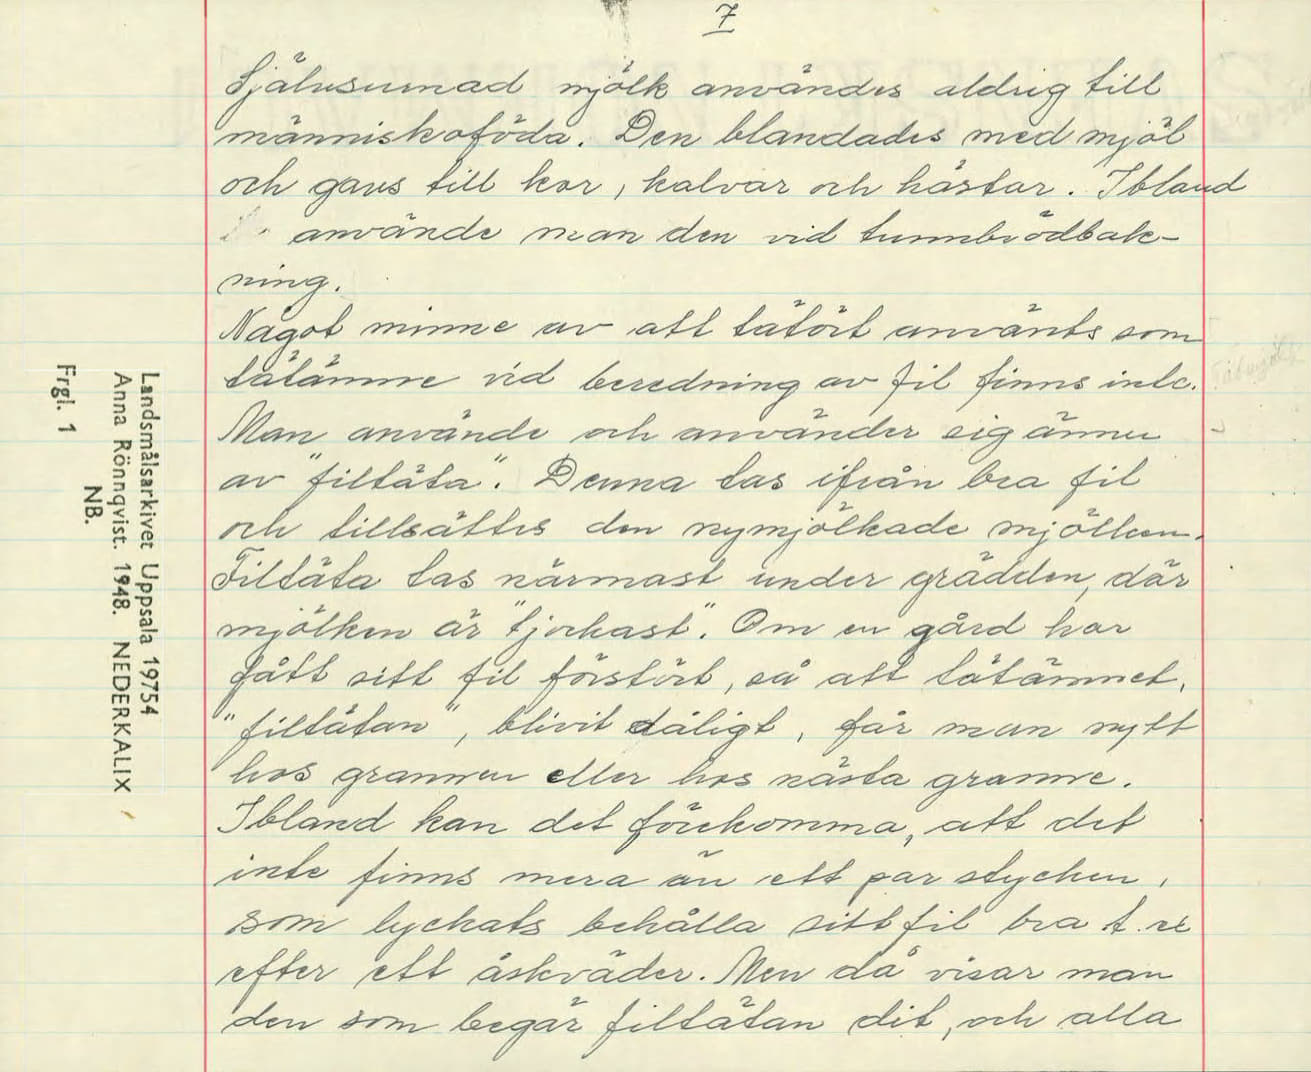 7
Självsurnad mjölk användes aldrig till
människoföda. Den blandades med mjöl
och gavs till kor, kalvar och hästar. Ibland
använde man den vid tunnbrödbak-
ning.
Något minne av att tätört använts som
tätämne vid beredning av fil finns inte.
Man använde och använder sig ännu
av "filtäta". Denna tas ifrån bra fil
och tillsättes den nymjölkade mjölken.
Filtäta tas närmast under grädden, där
mjölken är "tjockast". Om en gård har
fått sitt fil förstört, så att tätämnet,
"filtätan", blivit dåligt, får man nytt
hos grannen eller hos nästa granne.
Ibland kan det förekomma, att det
inte finns mera än ett par stycken,
som lyckats behålla sitt fil bra t. ex
efter ett åskväder. Men då visar man
den som begär filtätan dit, och alla
Landsmålsarkivet Uppsala 19754
Anna Rönnqvist. 1948. NEDERKALIX
NB.
Frgl. 1